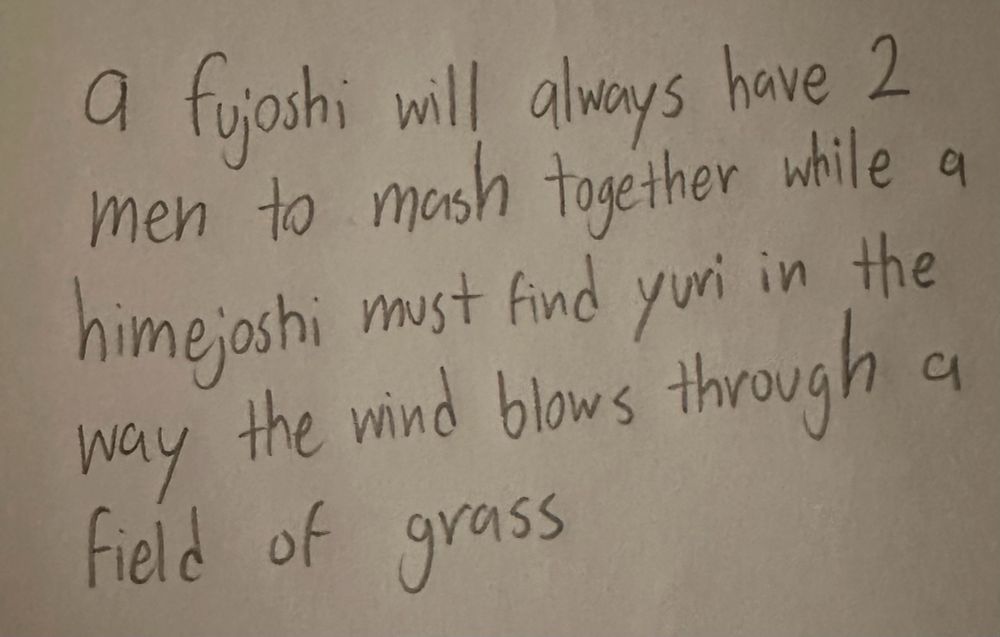 a fujoshi will always have 2
men to mash together while a
himejoshi must find yuri in the
way the wind blows through a
field of grass